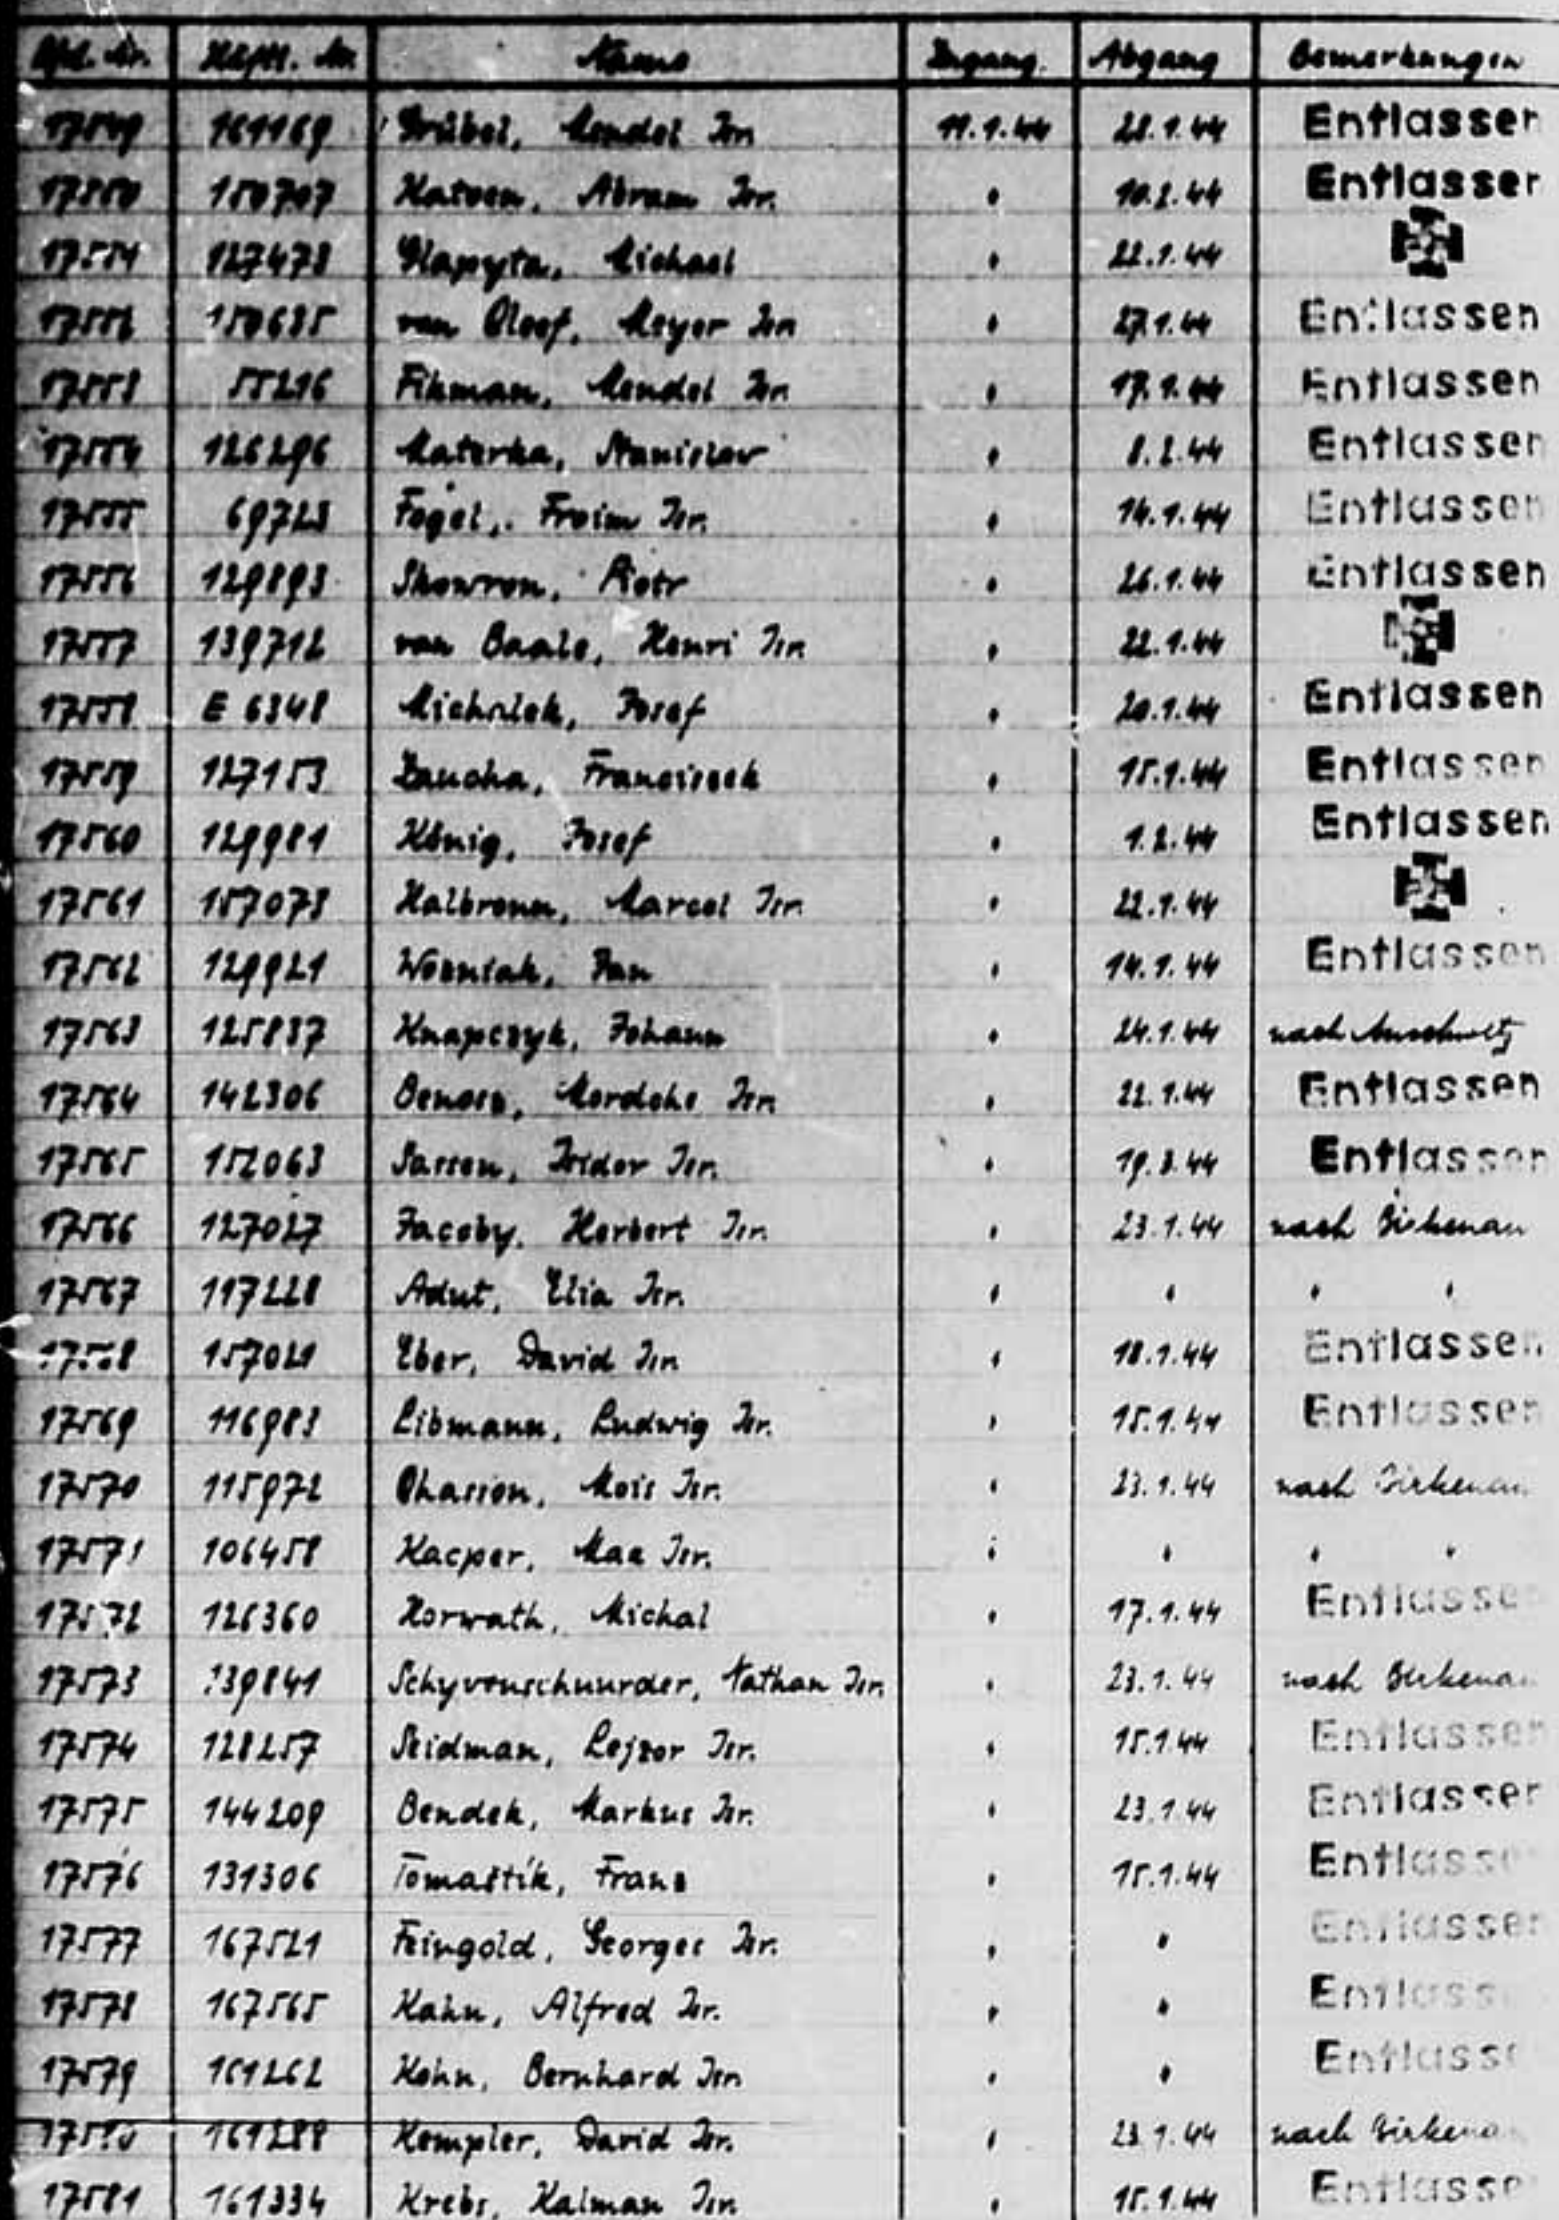 Lfd. Nr. Häftl. Nr. Name Zugang Abgang Bemerkungen
17549 161169 Grübel, Mendel Isr. 11.1.44 28.1.44 Entlassen
17550 150707 Abram Isr. " 10.2.44 Entlassen
17551 127473 Michael " 22.1.44
17552 150635 van Cleef, Meyer Isr. " 27.1.44 Entlassen
17553 55216 Fihman, Mendel Isr. " 17.1.44 Entlassen
17554 126296 Materka, Stanislav " 8.2.44 Entlassen
17555 69723 Fogel, Froim Isr. " 14.1.44 Entlassen
17556 129893 Skowron, Piotr " 26.1.44 Entlassen
17557 139712 van Baale, Henri Isr. " 22.1.44
17558 E 6348 Michalek, Josef " 20.1.44 Entlassen
17559 127153 Zaucha, Franciszek " 15.1.44 Entlassen
17560 129981 König, Josef " 1.2.44 Entlassen
17561 157073 Halbronn, Marcel Isr. " 22.1.44
17562 129921 Wozniak, Jan " 14.1.44 Entlassen
17563 125837 Knapczyk, Johann " 24.1.44 nach Auschwitz
17564 142306 Mordche Isr. " 22.1.44 Entlassen
17565 152063 Sassen, Isidor Isr. " 19.3.44 Entlassen
17566 127027 Jacoby, Herbert Isr. " 23.1.44 nach Birkenau
17567 117228 Adut, Elia Isr. " " " "
17568 157021 Eber, David Isr. " 18.1.44 Entlassen
17569 116983 Libmann, Ludwig Isr. " 15.1.44 Entlassen
17570 115972 Chassion, Mois Isr. " 23.1.44 nach Birkenau
17571 106458 Kacper, Max Isr. " " " "
17572 126360 Horwath, Michal " 17.1.44 Entlassen
17573 139841 Schyvenschuurder, Nathan Isr. " 23.1.44 nach Birkenau
17574 128257 Seidman, Lejzor Isr. " 15.1.44 Entlassen
17575 144209 Bendek, Markus Isr. " 23.1.44 Entlassen
17576 131306 Tomaštík, Franz " 15.1.44 Entlassen
17577 167521 Feingold, Georges Isr. " " Entlassen
17578 167565 Kahn, Alfred Isr. " " Entlassen
17579 161262 Kohn, Bernhard Isr. " " Entlassen
17580 161288 Kempler, David Isr. " 23.1.44 nach Birkenau
17581 161334 Krebs, Kalman Isr. " 15.1.44 Entlassen